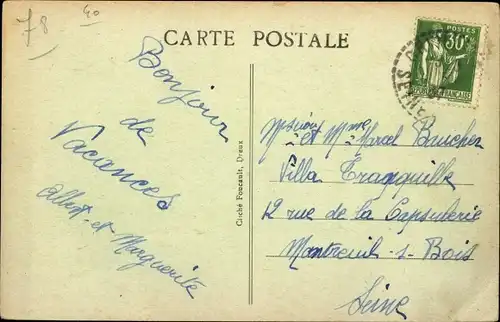 78
40
CARTE POSTALE
POSTES
30c
Bonjour
de
Vacances
Albert et Marguerite
Cliché Foucault, Dreux
et Mme Marcel Boucher
Villa Tranquille
12 rue de la Capsulerie
Montreuil-s-Bois
Seine